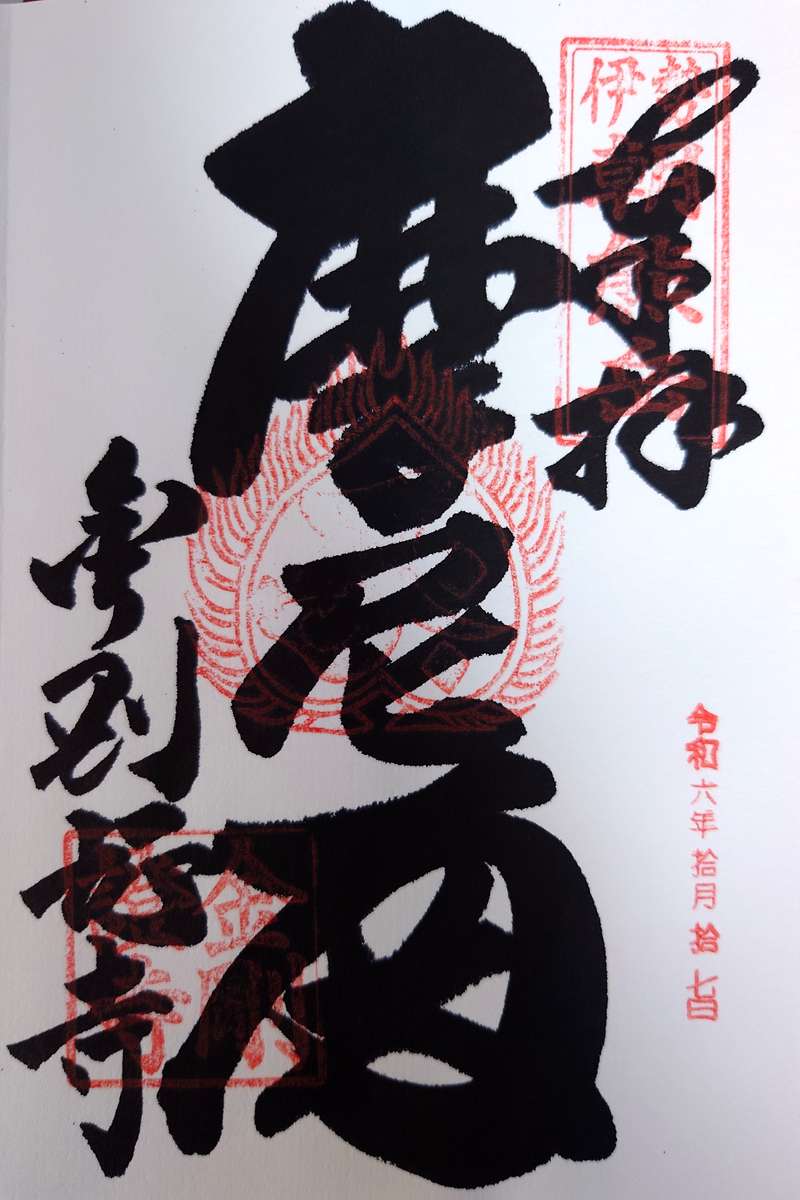 奉拝
伊勢朝熊岳
令和六年拾月拾七日
摩尼殿
金剛證寺
金剛
證寺